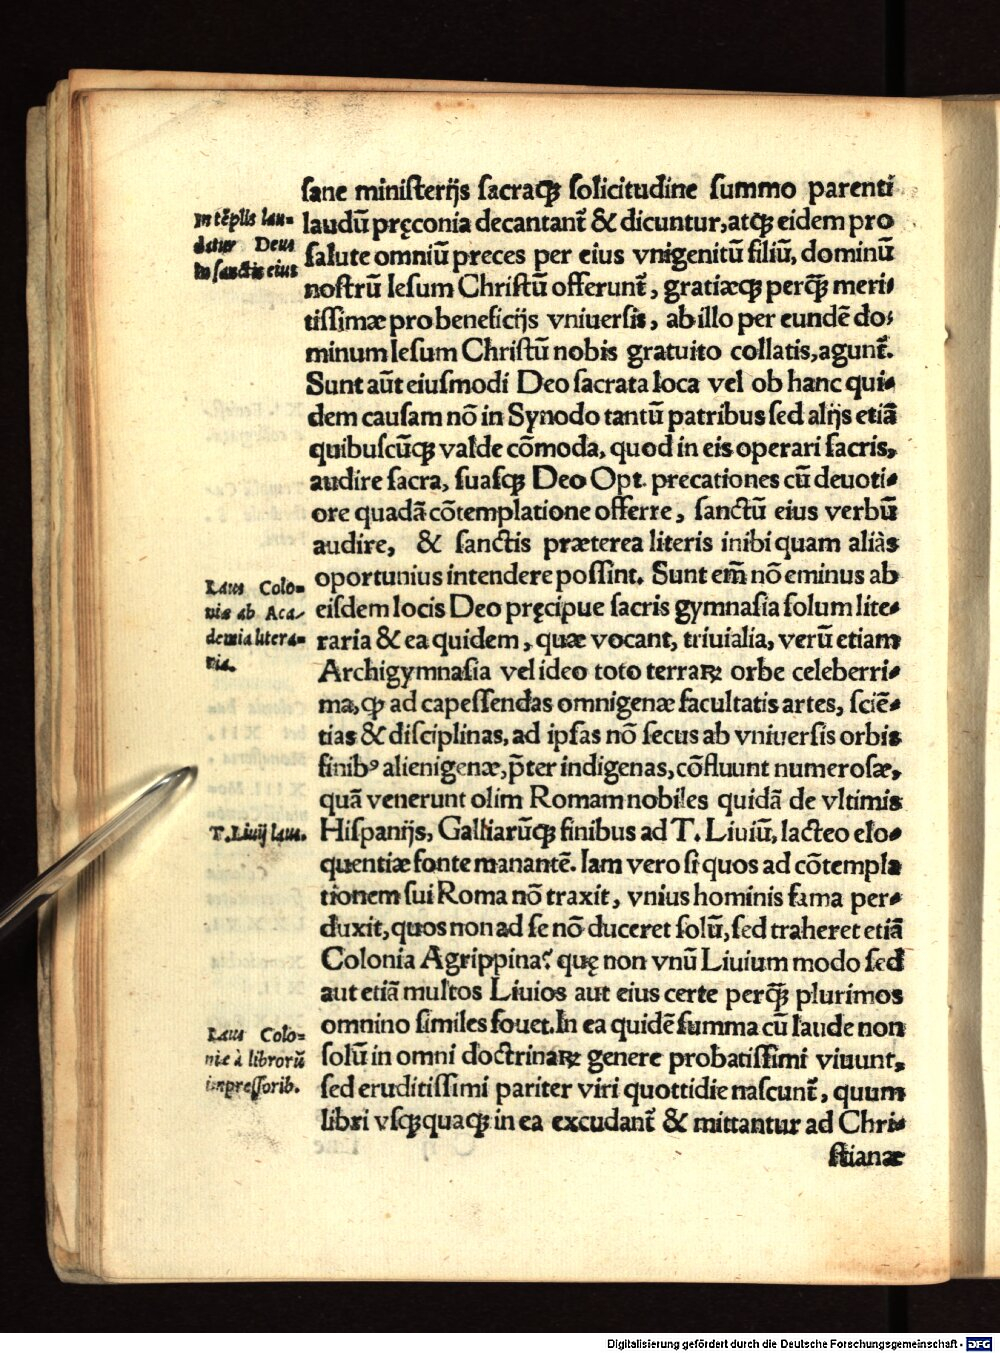 ſane miniſterijs ſacraqꝫ ſolicitudine ſummo parenti
laudũ pręconia decantant̃ & dicuntur, atqꝫ eidem pro
ſalute omniũ preces per eius vnigenitũ filiũ, dominũ
noſtrũ Ieſum Chriſtũ offerunt̃, gratiæqꝫ perq̃ꝫ meri⸗
tiſſimæ pro beneficijs vniuerſis, ab illo per eundẽ do⸗
minum Ieſum Chriſtũ nobis gratuito collatis, agunt̃.
Sunt aũt eiuſmodi Deo ſacrata loca vel ob hanc qui⸗
dem cauſam nõ in Synodo tantũ patribus ſed alijs etiã
quibuſcũqꝫ valde cõmoda, quod in eis operari ſacris,
audire ſacra, ſuaſqꝫ Deo Opt. precationes cũ deuoti⸗
ore quadã cõtemplatione offerre, ſanctũ eius verbũ
audire, & ſanctis præterea literis inibi quam aliàs
oportunius intendere poſſint. Sunt em̃ nõ eminus ab
eiſdem locis Deo pręcipue ſacris gymnaſia ſolum lite⸗
raria & ea quidem, quæ vocant, triuialia, verũ etiam
Archigymnaſia vel ideo toto terraꝝ orbe celeberri⸗
ma, ꝙ ad capeſſendas omnigenæ facultatis artes, ſciẽ⸗
tias & diſciplinas, ad ipſas nõ ſecus ab vniuerſis orbis
finibꝰ alienigenæ, p̃ter indigenas, cõfluunt numeroſæ,
quã venerunt olim Romam nobiles quidã de vltimis
Hiſpanijs, Galliarũqꝫ finibus ad T. Liuiũ, lacteo elo⸗
quentiæ fonte manantẽ. Iam vero ſi quos ad cõtempla
tionem ſui Roma nõ traxit, vnius hominis fama per⸗
duxit, quos non ad ſe nõ duceret ſolũ, ſed traheret etiã
Colonia Agrippina? quę non vnũ Liuium modo ſed
aut etiã multos Liuios aut eius certe perq̃ꝫ plurimos
omnino ſimiles fouet. In ea quidẽ ſumma cũ laude non
ſolũ in omni doctrinaꝝ genere probatiſſimi viuunt,
ſed eruditiſſimi pariter viri quottidie naſcunt̃, quum
libri vſqꝫquaqꝫ in ea excudant̃ & mittantur ad Chri⸗
ſtianæ
In tẽplis lau⸗
datur Deus
in ſanctis eius
Laus Colo⸗
niæ ab Aca⸗
demia litera⸗
ria.
T. Liuij laus.
Laus Colo⸗
niæ à librorũ
impreſſorib.
Digitalisierung gefördert durch die Deutsche Forschungsgemeinschaft - DFG